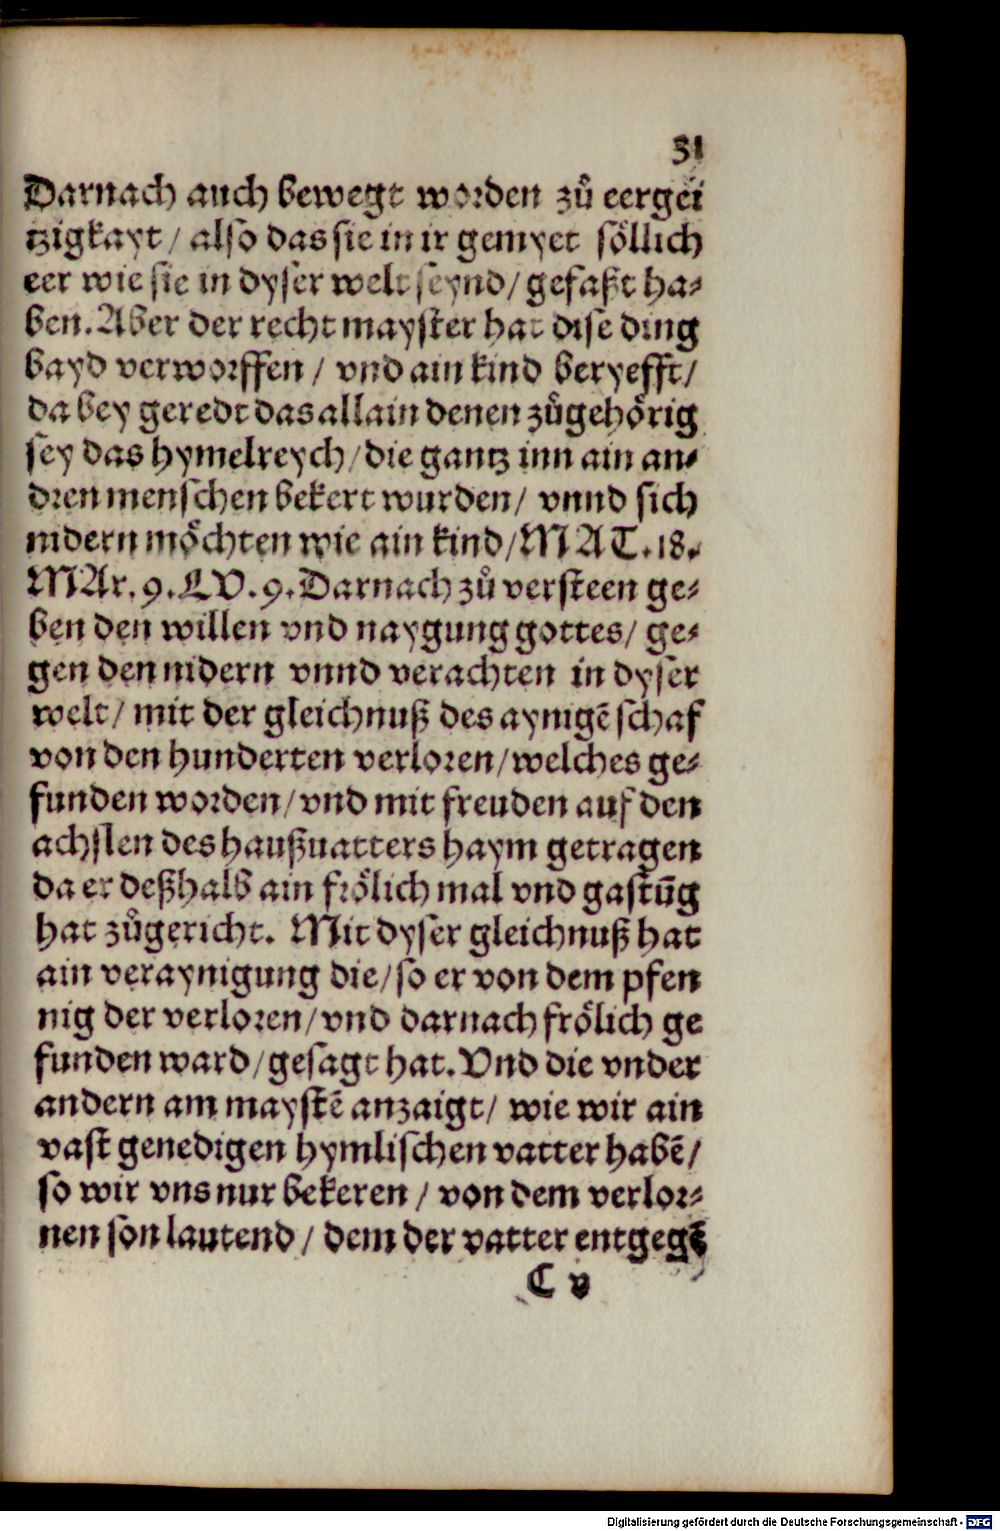 31
Darnach auch bewegt worden zů eergei
tzigkayt / also das sie in ir gemyet söllich
eer wie sie in dyser welt seynd / gefaßt ha-
ben. Aber der recht mayster hat dise ding
bayd verworffen / vnd ain kind beryefft /
da bey geredt das allain denen zůgehörig
sey das hymelreych / die gantz inn ain an-
dren menschen bekert wurden / vnnd sich
nidern möchten wie ain kind / MAT. 18.
MAr. 9. LV. 9. Darnach zů versteen ge-
ben den willen vnd naygung gottes / ge-
gen den nidern vnnd verachten in dyser
welt / mit der gleichnuß des aynigē schaf
von den hunderten verloren / welches ge-
funden worden / vnd mit freuden auf den
achslen des haußuatters haym getragen
da er deßhalb ain frölich mal vnd gastūg
hat zůgericht. Mit dyser gleichnuß hat
ain veraynigung die / so er von dem pfen
nig der verloren / vnd darnach frölich ge
funden ward / gesagt hat. Vnd die vnder
andern am maystē anzaigt / wie wir ain
vast genedigen hymlischen vatter habē /
so wir vns nur bekeren / von dem verlor-
nen son lautend / dem der vatter entgegē
C v
Digitalisierung gefördert durch die Deutsche Forschungsgemeinschaft - DFG